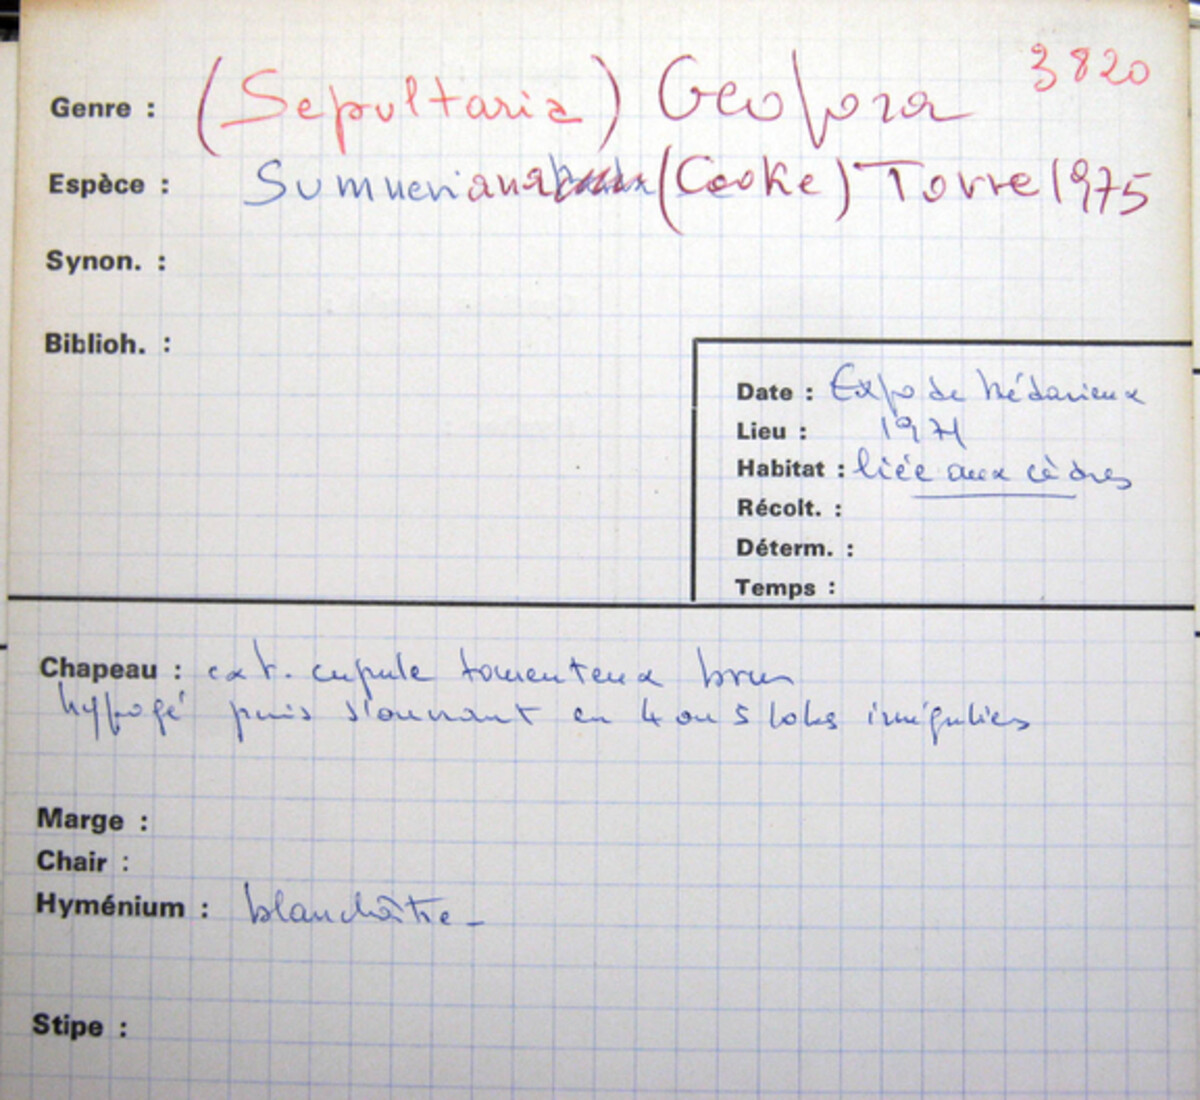 3820
Genre : (Sepultaria) Geopora
Espèce : Sumneriana (Cooke) Torre 1975
Synon. :
Biblioh. :
Date : Expo de Bédarieux
Lieu : 1971
Habitat : liée aux cèdres
Récolt. :
Déterm. :
Temps :
Chapeau : ext. cupule tomenteux brun
hypogé puis s'ouvrant en 4 ou 5 lobes irréguliers
Marge :
Chair :
Hyménium : blanchâtre -
Stipe :